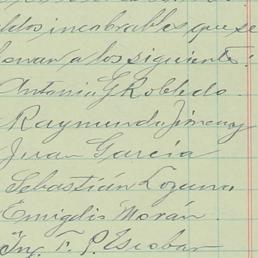 ldos incobrables que se
onan, a los siguientes:
Antonio G Robledo.
Raymundo Jimenez
Juan García
Sebastián Lozano
Emigdio Morán.
Ing. F. P. Escobar